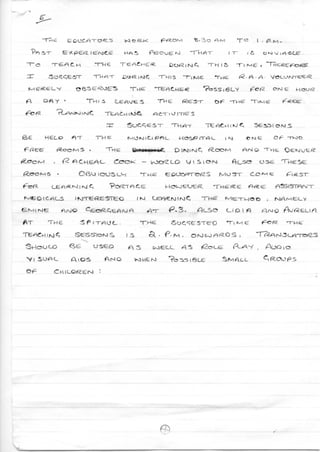 5
THE EDUCATORS WORK FROM 8.30 AM TO 1. P.M.
PAST EXPERIENCE HAS PROVEN THAT IT IS UNVIABLE
TO TEACH THE TEACHER DURING THIS TIME, THEREFORE
I SUGGEST THAT DURING THIS TIME THE R.A.A VOLUNTEER
MERELY OBSERVES THE TEACHER POSSIBLY FOR ONE HOUR
A DAY. THIS LEAVES THE REST OF THE TIME FREE
FOR PLANNING TEACHING ACTIVITIES
I SUGGEST THAT TEACHING SESSIONS
BE HELD AT THE MUNICIPAL HOSPITAL IN ONE OF TWO
FREE ROOMS. THE DINING ROOM AND THE DENVER
ROOM, RACHEAL COOK - WORLD VISION ALSO USE THESE
ROOMS. OBVIOUSLY THE EDUCATORS MUST COME FIRST
FOR LEARNING PORTAGE HOWEVER THERE ARE ASSISTANT
MEDICALS INTERESTED IN LEARNING THE METHOD, NAMELY
EMINE AND GEORGEANA AT P.S. ALSO LIDIA AND AURELIA
AT THE SPITAUL. THE SUGGESTED TIME FOR THE
TEACHING SESSIONS IS 2. P.M. ONWARDS, TRANSLATORS
SHOULD BE USED AS WELL AS ROLE PLAY, AUDIO
VISUAL AIDS AND WHEN POSSIBLE SMALL GROUPS
OF CHILDREN!